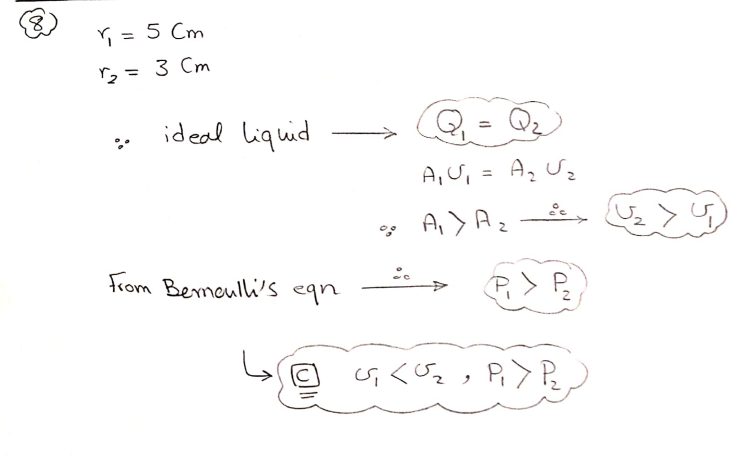 8
r₁ = 5 Cm
r₂ = 3 Cm
∵ ideal liquid → Q₁ = Q₂
A₁υ₁ = A₂υ₂
∵ A₁ > A₂ ∴→ υ₂ > υ₁
From Bernoulli's eqn ∴→ P₁ > P₂
↳ C υ₁ < υ₂ , P₁ > P₂